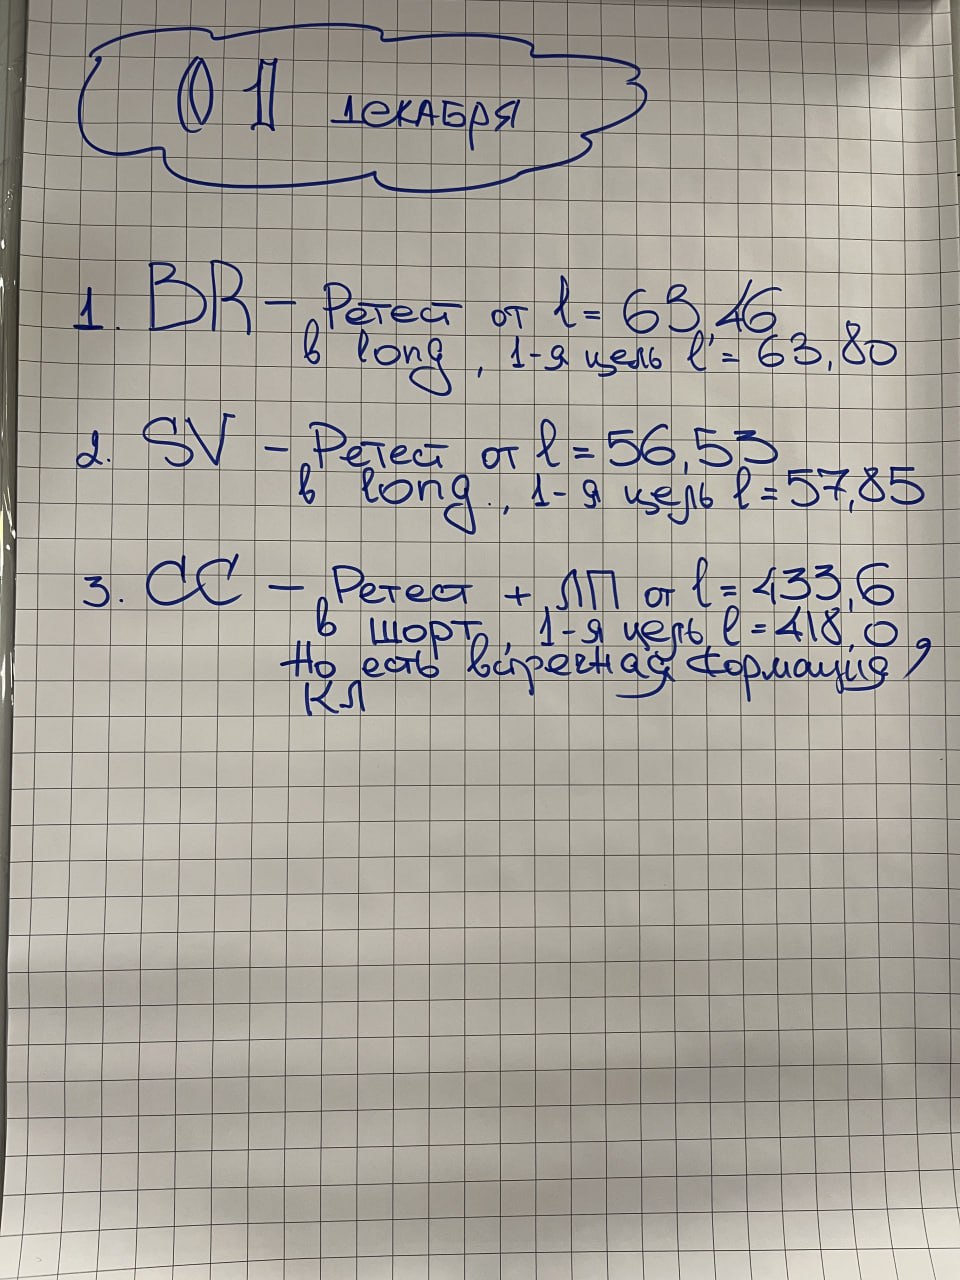 01 декабря
1. BR – Ретест от l = 63,46
в long, 1-я цель l' = 63,80
2. SV – Ретест от l = 56,53
в long., 1-я цель l = 57,85
3. CC – Ретест + ЛП от l = 433,6
в шорт, 1-я цель l = 418,0,
Но есть встречная формация
КЛ